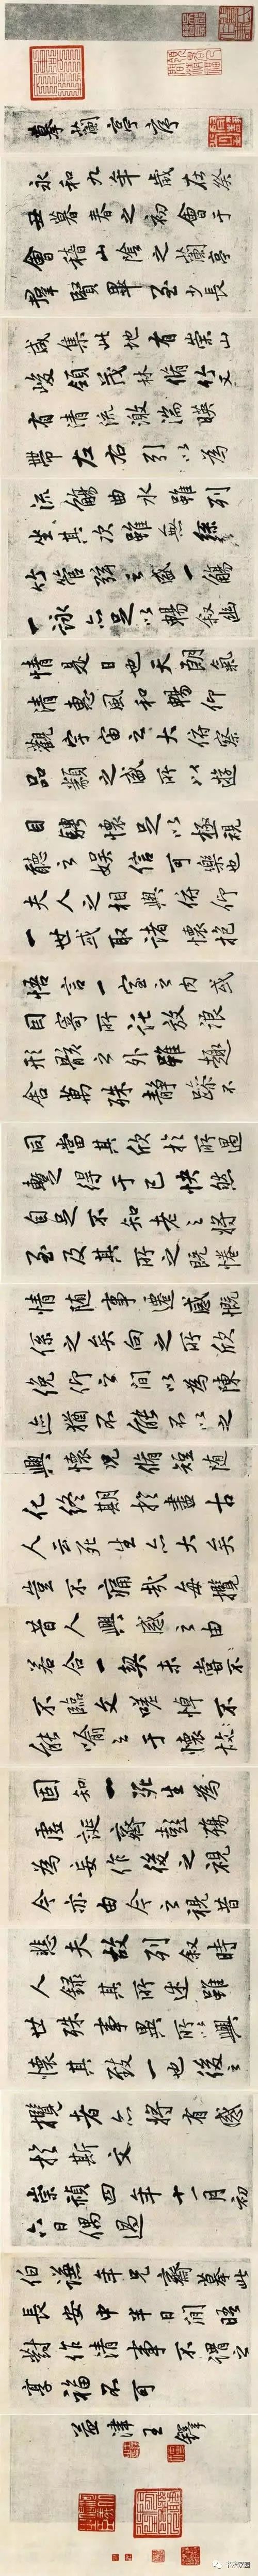 摹蘭亭序
永和九年歲在癸
丑暮春之初會于
會稽山陰之蘭亭
羣賢畢至少長
咸集此地有崇山
峻領茂林脩竹又
有清流激湍暎
帶左右引以為
流觴曲水雖列
坐其次雖無絲
竹管弦之盛一觴
一詠亦足以暢叙幽
情是日也天朗氣
清惠風和暢仰
觀宇宙之大俯察
品類之盛所以遊
目騁懷足以極視
聽之娛信可樂也
夫人之相與俯仰
一世或取諸懷抱
悟言一室之內或
因寄所託放浪
形骸之外雖趣
舍萬殊靜躁不
同當其欣於所遇
暫得于己快然
自足不知老之將
至及其所之既惓
情隨事遷感慨
係之矣向之所欣
俛仰之間以為陳
迹猶不能不以之
興懷況脩短隨
化終期於盡古
人云死生亦大矣
豈不痛哉每攬
昔人興感之由
若合一契未嘗不
不臨文嗟悼不
能喻之于懷
固知一死生為
虛誕齊彭殤
為妄作後之視
今亦由今之視昔
悲夫故列叙時
人錄其所述雖
世殊事異所以興
懷其致一也後之
攬者亦將有感
於斯文
崇禎四年十一月初
六日偶過
伯謙年兄齋摹此
長安中半日閒晤
對作清事不謂之
享福不可
孟津王鐸